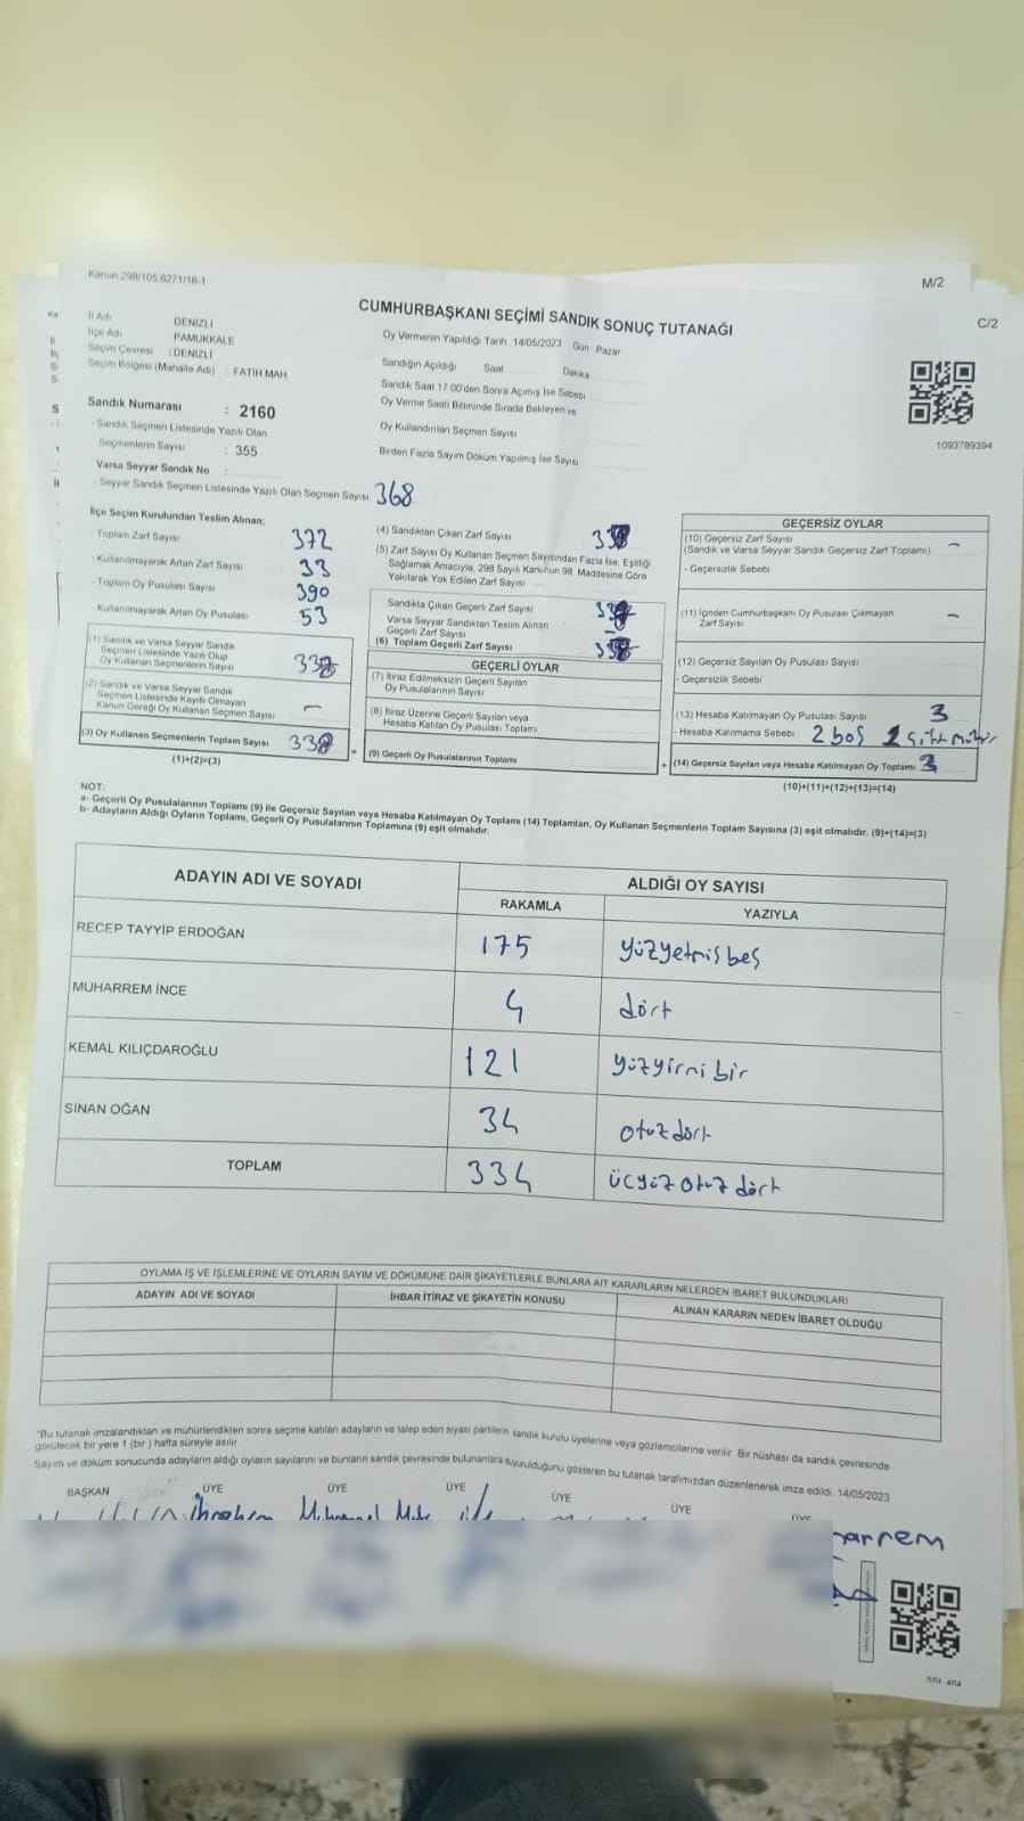 Kanun 298/105,6271/18-1
M/2
C/2
CUMHURBAŞKANI SEÇİMİ SANDIK SONUÇ TUTANAĞI
İl Adı DENİZLİ
İlçe Adı PAMUKKALE
Seçim Çevresi : DENİZLİ
Seçim Bölgesi (Mahalle Adı) : FATİH MAH.
Oy Vermenin Yapıldığı Tarih: 14/05/2023 Gün: Pazar
Sandığın Açıldığı Saat Dakika
Sandık Saat 17.00'den Sonra Açılmış İse Sebebi
Oy Verme Saati Bitiminde Sırada Bekleyen ve
Oy Kullandırılan Seçmen Sayısı
Birden Fazla Sayım Döküm Yapılmış İse Sayısı
1093789394
Sandık Numarası : 2160
- Sandık Seçmen Listesinde Yazılı Olan
Seçmenlerin Sayısı : 355
Varsa Seyyar Sandık No :
- Seyyar Sandık Seçmen Listesinde Yazılı Olan Seçmen Sayısı 368
İlçe Seçim Kurulundan Teslim Alınan;
- Toplam Zarf Sayısı 372
- Kullanılmayarak Artan Zarf Sayısı 33
- Toplam Oy Pusulası Sayısı 390
- Kullanılmayarak Artan Oy Pusulası 53
(1) Sandık ve Varsa Seyyar Sandık
Seçmen Listesinde Yazılı Olup
Oy Kullanan Seçmenlerin Sayısı
(2) Sandık ve Varsa Seyyar Sandık
Seçmen Listesinde Kayıtlı Olmayan
Kanun Gereği Oy Kullanan Seçmen Sayısı –
(3) Oy Kullanan Seçmenlerin Toplam Sayısı
(1)+(2)=(3)
(4) Sandıktan Çıkan Zarf Sayısı
(5) Zarf Sayısı Oy Kullanan Seçmen Sayısından Fazla İse, Eşitliği
Sağlamak Amacıyla, 298 Sayılı Kanunun 98. Maddesine Göre
Yakılarak Yok Edilen Zarf Sayısı
Sandıkta Çıkan Geçerli Zarf Sayısı
Varsa Seyyar Sandıktan Teslim Alınan
Geçerli Zarf Sayısı –
(6) Toplam Geçerli Zarf Sayısı
GEÇERLİ OYLAR
(7) İtiraz Edilmeksizin Geçerli Sayılan
Oy Pusulalarının Sayısı
(8) İtiraz Üzerine Geçerli Sayılan veya
Hesaba Katılan Oy Pusulası Toplamı
(9) Geçerli Oy Pusulalarının Toplamı
GEÇERSİZ OYLAR
(10) Geçersiz Zarf Sayısı –
(Sandık ve Varsa Seyyar Sandık Geçersiz Zarf Toplamı)
- Geçersizlik Sebebi
(11) İçinden Cumhurbaşkanı Oy Pusulası Çıkmayan –
Zarf Sayısı
(12) Geçersiz Sayılan Oy Pusulası Sayısı
- Geçersizlik Sebebi
(13) Hesaba Katılmayan Oy Pusulası Sayısı 3
- Hesaba Katılmama Sebebi 2 boş
(14) Geçersiz Sayılan veya Hesaba Katılmayan Oy Toplamı 3
(10)+(11)+(12)+(13)=(14)
NOT:
a- Geçerli Oy Pusulalarının Toplamı (9) ile Geçersiz Sayılan veya Hesaba Katılmayan Oy Toplamı (14) Toplamları, Oy Kullanan Seçmenlerin Toplam Sayısına (3) eşit olmalıdır. (9)+(14)=(3)
b- Adayların Aldığı Oyların Toplamı, Geçerli Oy Pusulalarının Toplamına (9) eşit olmalıdır.
ADAYIN ADI VE SOYADI
ALDIĞI OY SAYISI
RAKAMLA YAZIYLA
RECEP TAYYİP ERDOĞAN 175 yüzyetmiş beş
MUHARREM İNCE 4 dört
KEMAL KILIÇDAROĞLU 121 yüzyirmi bir
SİNAN OĞAN 34 otuz dört
TOPLAM 334 üçyüz otuz dört
OYLAMA İŞ VE İŞLEMLERİNE VE OYLARIN SAYIM VE DÖKÜMÜNE DAİR ŞİKAYETLERLE BUNLARA AİT KARARLARIN NELERDEN İBARET BULUNDUKLARI
ADAYIN ADI VE SOYADI
İHBAR İTİRAZ VE ŞİKAYETİN KONUSU
ALINAN KARARIN NEDEN İBARET OLDUĞU
"Bu tutanak imzalandıktan ve mühürlendikten sonra seçime katılan adayların ve talep eden siyasi partilerin sandık kurulu üyelerine veya gözlemcilerine verilir. Bir nüshası da sandık çevresinde
görülecek bir yere 1 (bir) hafta süreyle asılır
Sayım ve döküm sonucunda adayların aldığı oyların sayılarını ve bunların sandık çevresinde bulunanlara duyulduğunu gösteren bu tutanak tarafımızdan düzenlenerek imza edildi. 14/05/2023
BAŞKAN ÜYE ÜYE ÜYE ÜYE ÜYE ÜYE
İbrahim
arrem